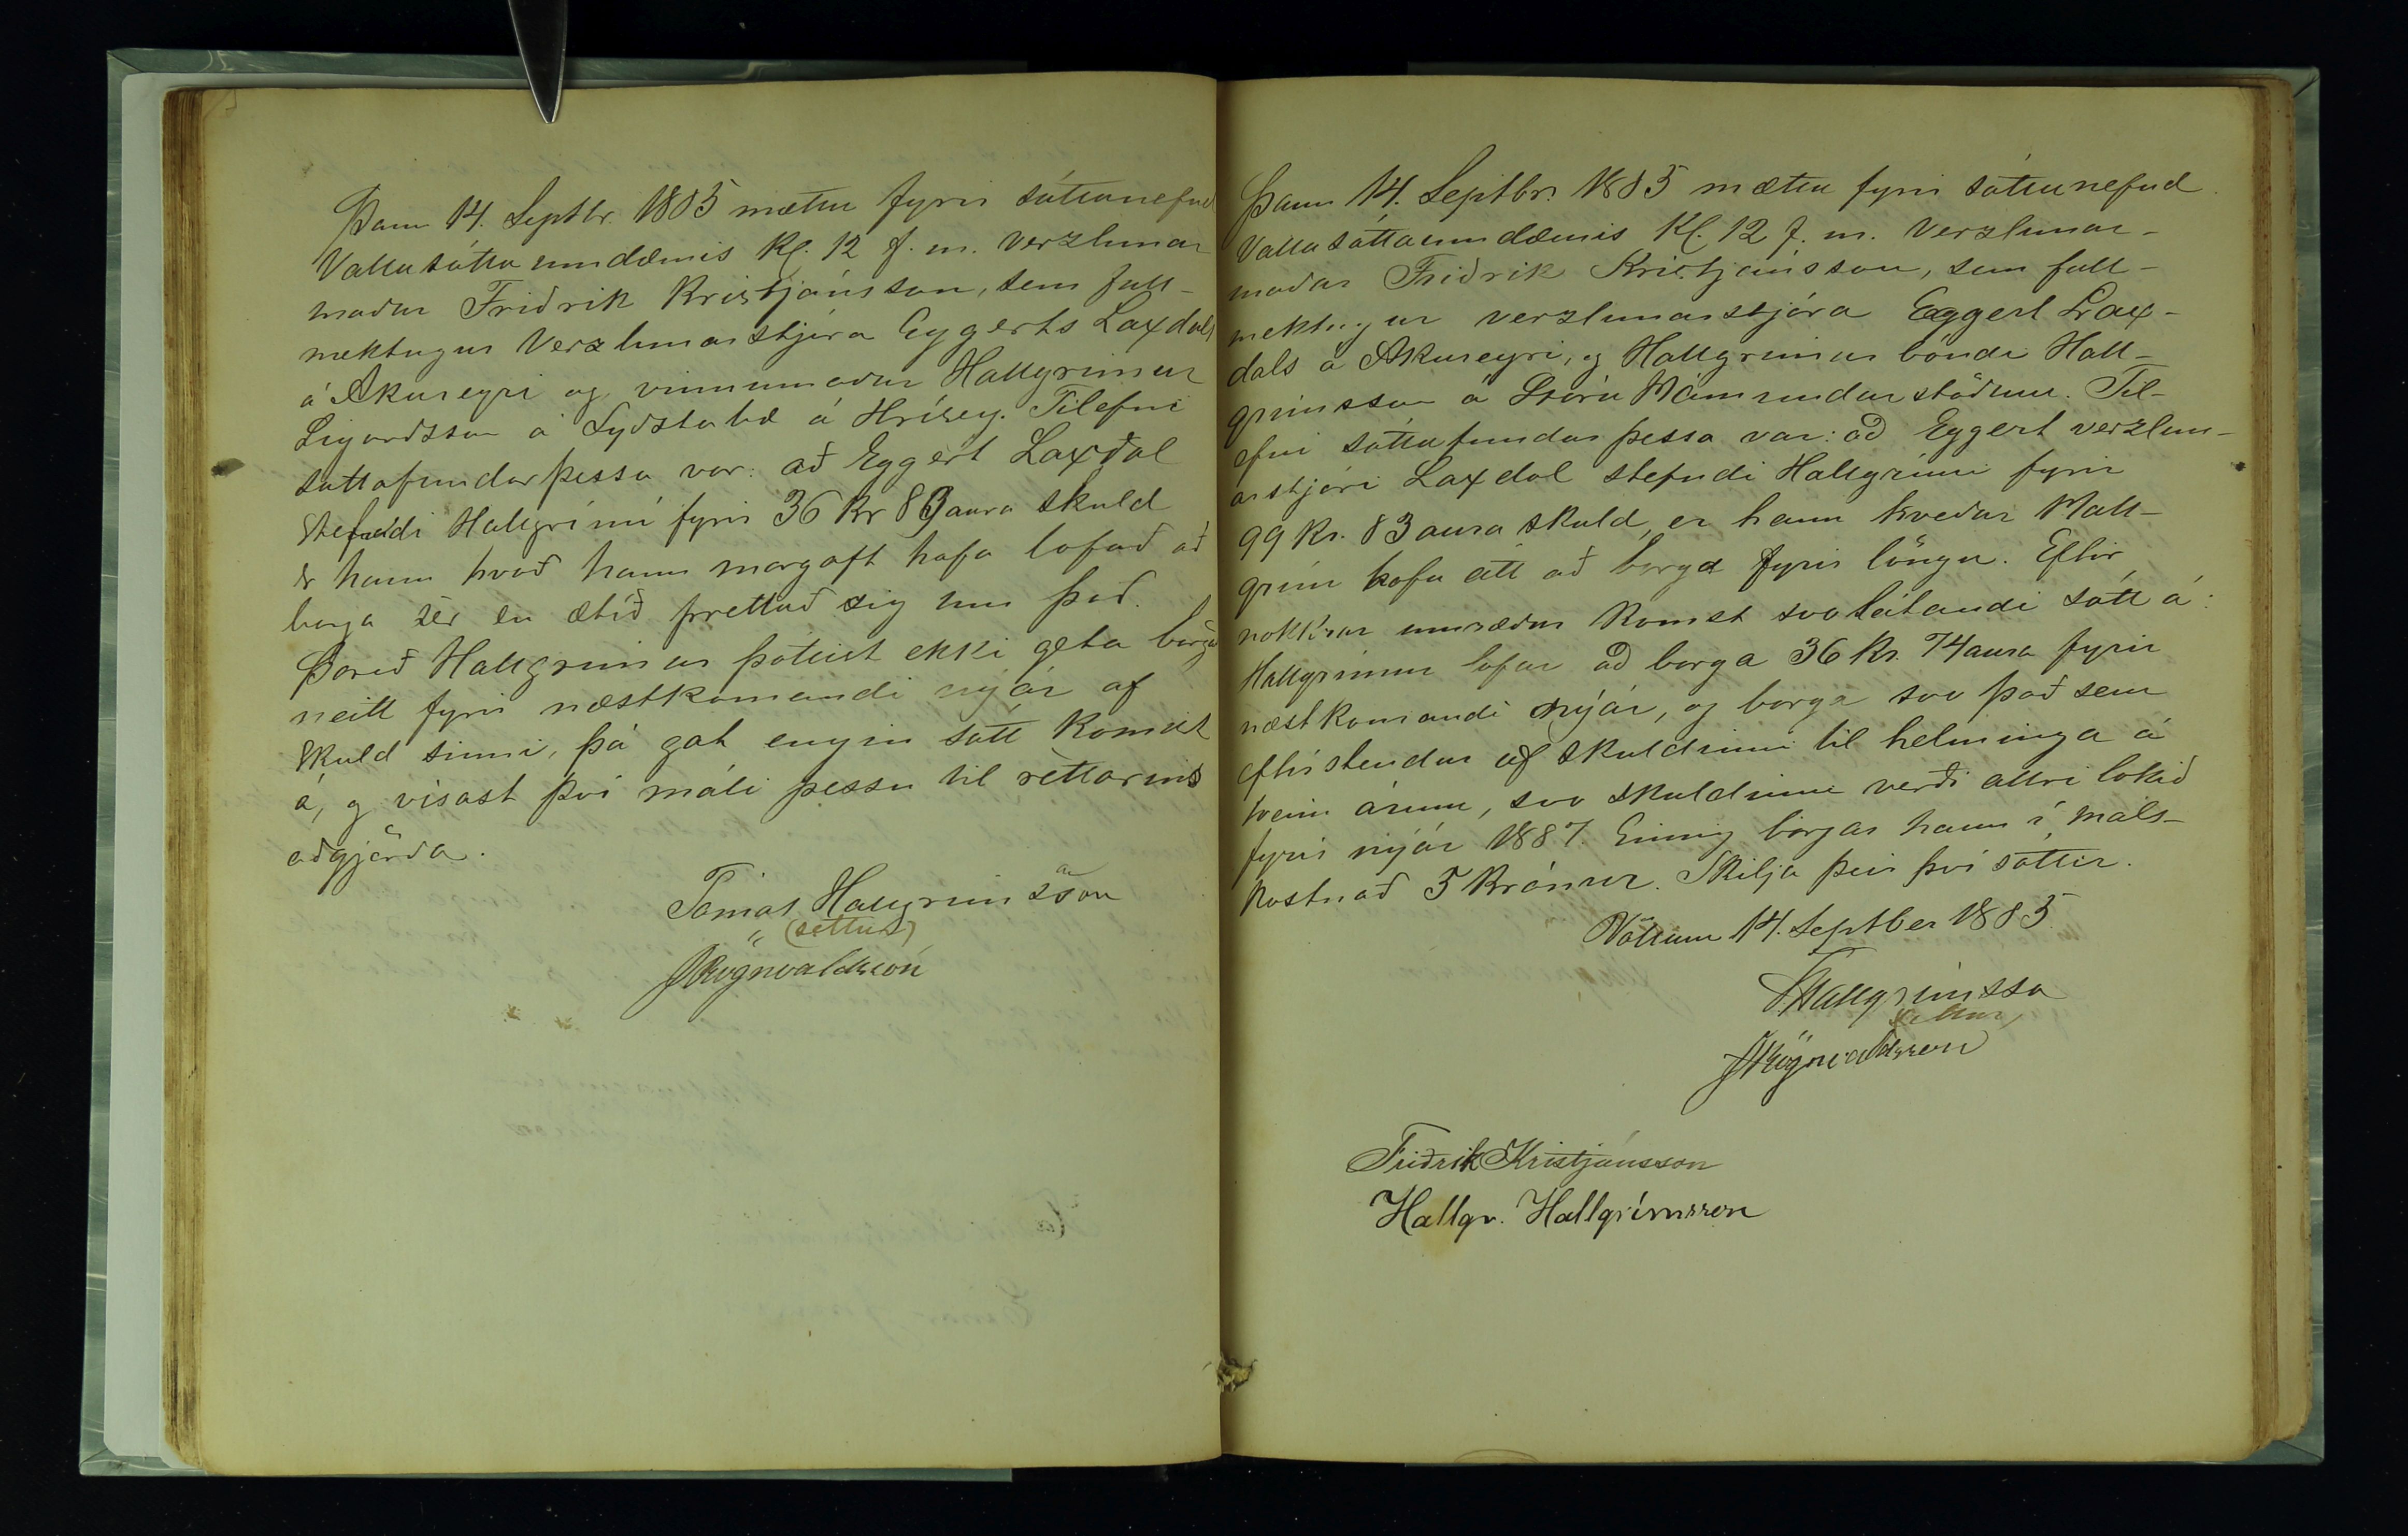 Þann 14. Septbr. 1885 mættu fyrir sáttanefnd
Vallasáttaumdæmis Kl. 12 f. m. Verzlunar
maður Friðrik Kristjánsson, sem full-
mektugur Verzlunarstjóra Eggerts Laxdals
á Akureyri og vinnumaður Hallgrímur
Sigurdsson á Sydstabæ á Hrísey. Tilefni
sáttafundar þessa var: að Eggert Laxdal
stefndi Hallgrími fyrir 36 Kr aura skuld
er hann kvað hann margoft hafa lofað að
borga sér en ætíð prettað sig um það.
Þareð Hallgrímur þóttist ekki geta borgað
neitt fyrir næstkomandi nýár af
skuld sinni, þá gat engin sátt komist
á, og vísast því máli þessu til réttarins
aðgjörða.
Tómas Hallgrímsson
(settur)
JRögnvaldsson
Þann 14. Septbr. 1885 mættu fyrir sáttanefnd
Vallasáttaumdæmis Kl. 12 f. m. Verzlunar-
maður Friðrik Kristjánsson, sem full-
mektugur verzlunarstjóra Eggert Lax-
dals á Akureyri, og Hallgrímur bóndi Hall-
grímsson á Stóru Hámundarstöðum. Til-
efni sáttafundar þessa var: að Eggert verzlun-
arstjóri Laxdal stefndi Hallgrími fyrir
99 Kr. 83 aura skuld, er hann kveður Hall-
grím hafa átt að borga fyrir löngu. Eftir
nokkrar umræður komst svolátandi sátt á:
Hallgrímur lofar að borga 36 Kr. 74 aura fyrir
næstkomandi nýár, og borga svo það sem
eftirstendur af skuldinni til helminga á
tveim árum, svo skuldinni verði allri lokið
fyrir nýár 1887. Einnig borgar hann í máls-
kostnað 5 Krónur. Skilja þeir því sáttir.
Völlum 14. Septber 1885.
THallgrímsso
settur
JRögnvaldsson
Friðrik Kristjánsson
Hallgr. Hallgrímsson